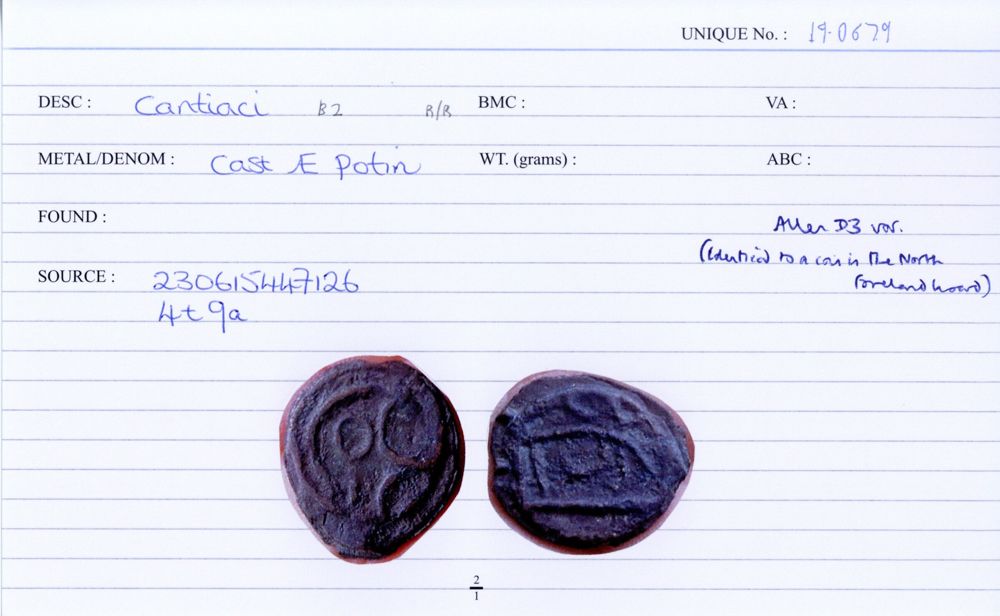 UNIQUE No. : 19.0679
DESC : Cantiaci B2 R/R BMC : VA :
METAL/DENOM : Cast Æ Potin WT. (grams) : ABC :
FOUND :
Allen D3 var.
(Identical to a coin in the North
Foreland hoard)
SOURCE : 230615447126
4t9a
2
1